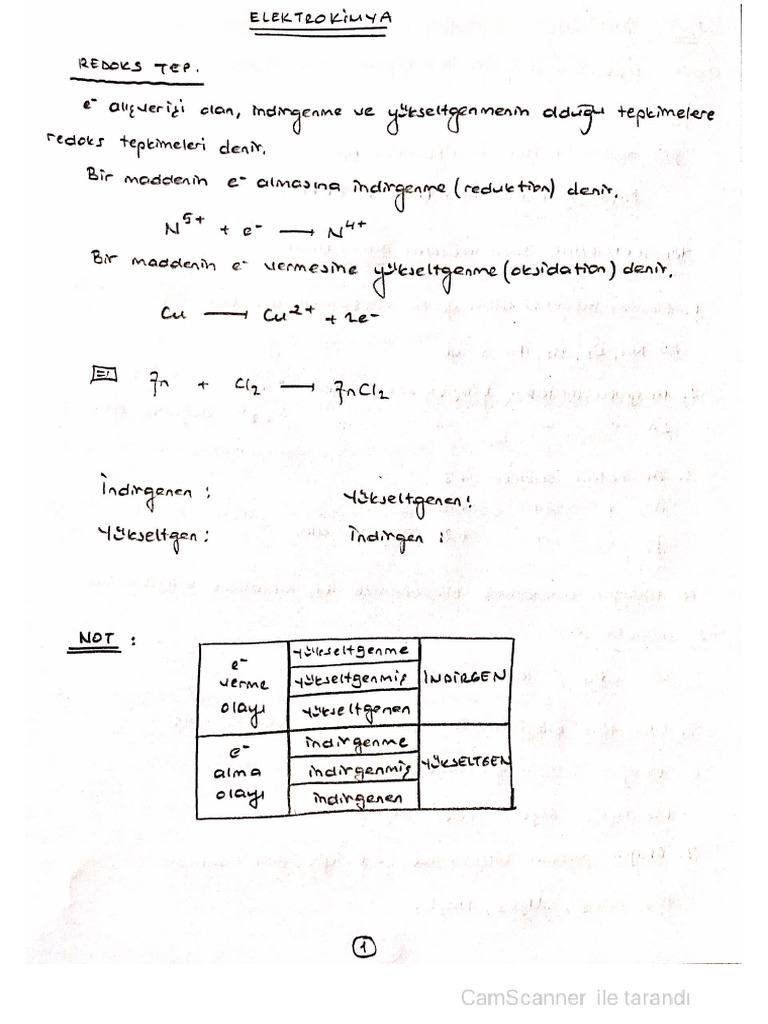 ELEKTROKİMYA
REDOKS TEP.
e⁻ alışverişi olan, indirgenme ve yükseltgenmenin olduğu tepkimelere
redoks tepkimeleri denir.
Bir maddenin e⁻ almasına indirgenme (reduktion) denir.
N⁵⁺ + e⁻ → N⁴⁺
Bir maddenin e⁻ vermesine yükseltgenme (oksidation) denir.
Cu → Cu²⁺ + 2e⁻
Zn + Cl₂ → ZnCl₂
İndirgenen : Yükseltgenen :
Yükseltgen : İndirgen :
NOT :
e⁻ verme olayı
yükseltgenme
yükseltgenmiş
yükseltgenen
İNDİRGEN
e⁻ alma olayı
indirgenme
indirgenmiş
indirgenen
YÜKSELTGEN
1
CamScanner ile tarandı